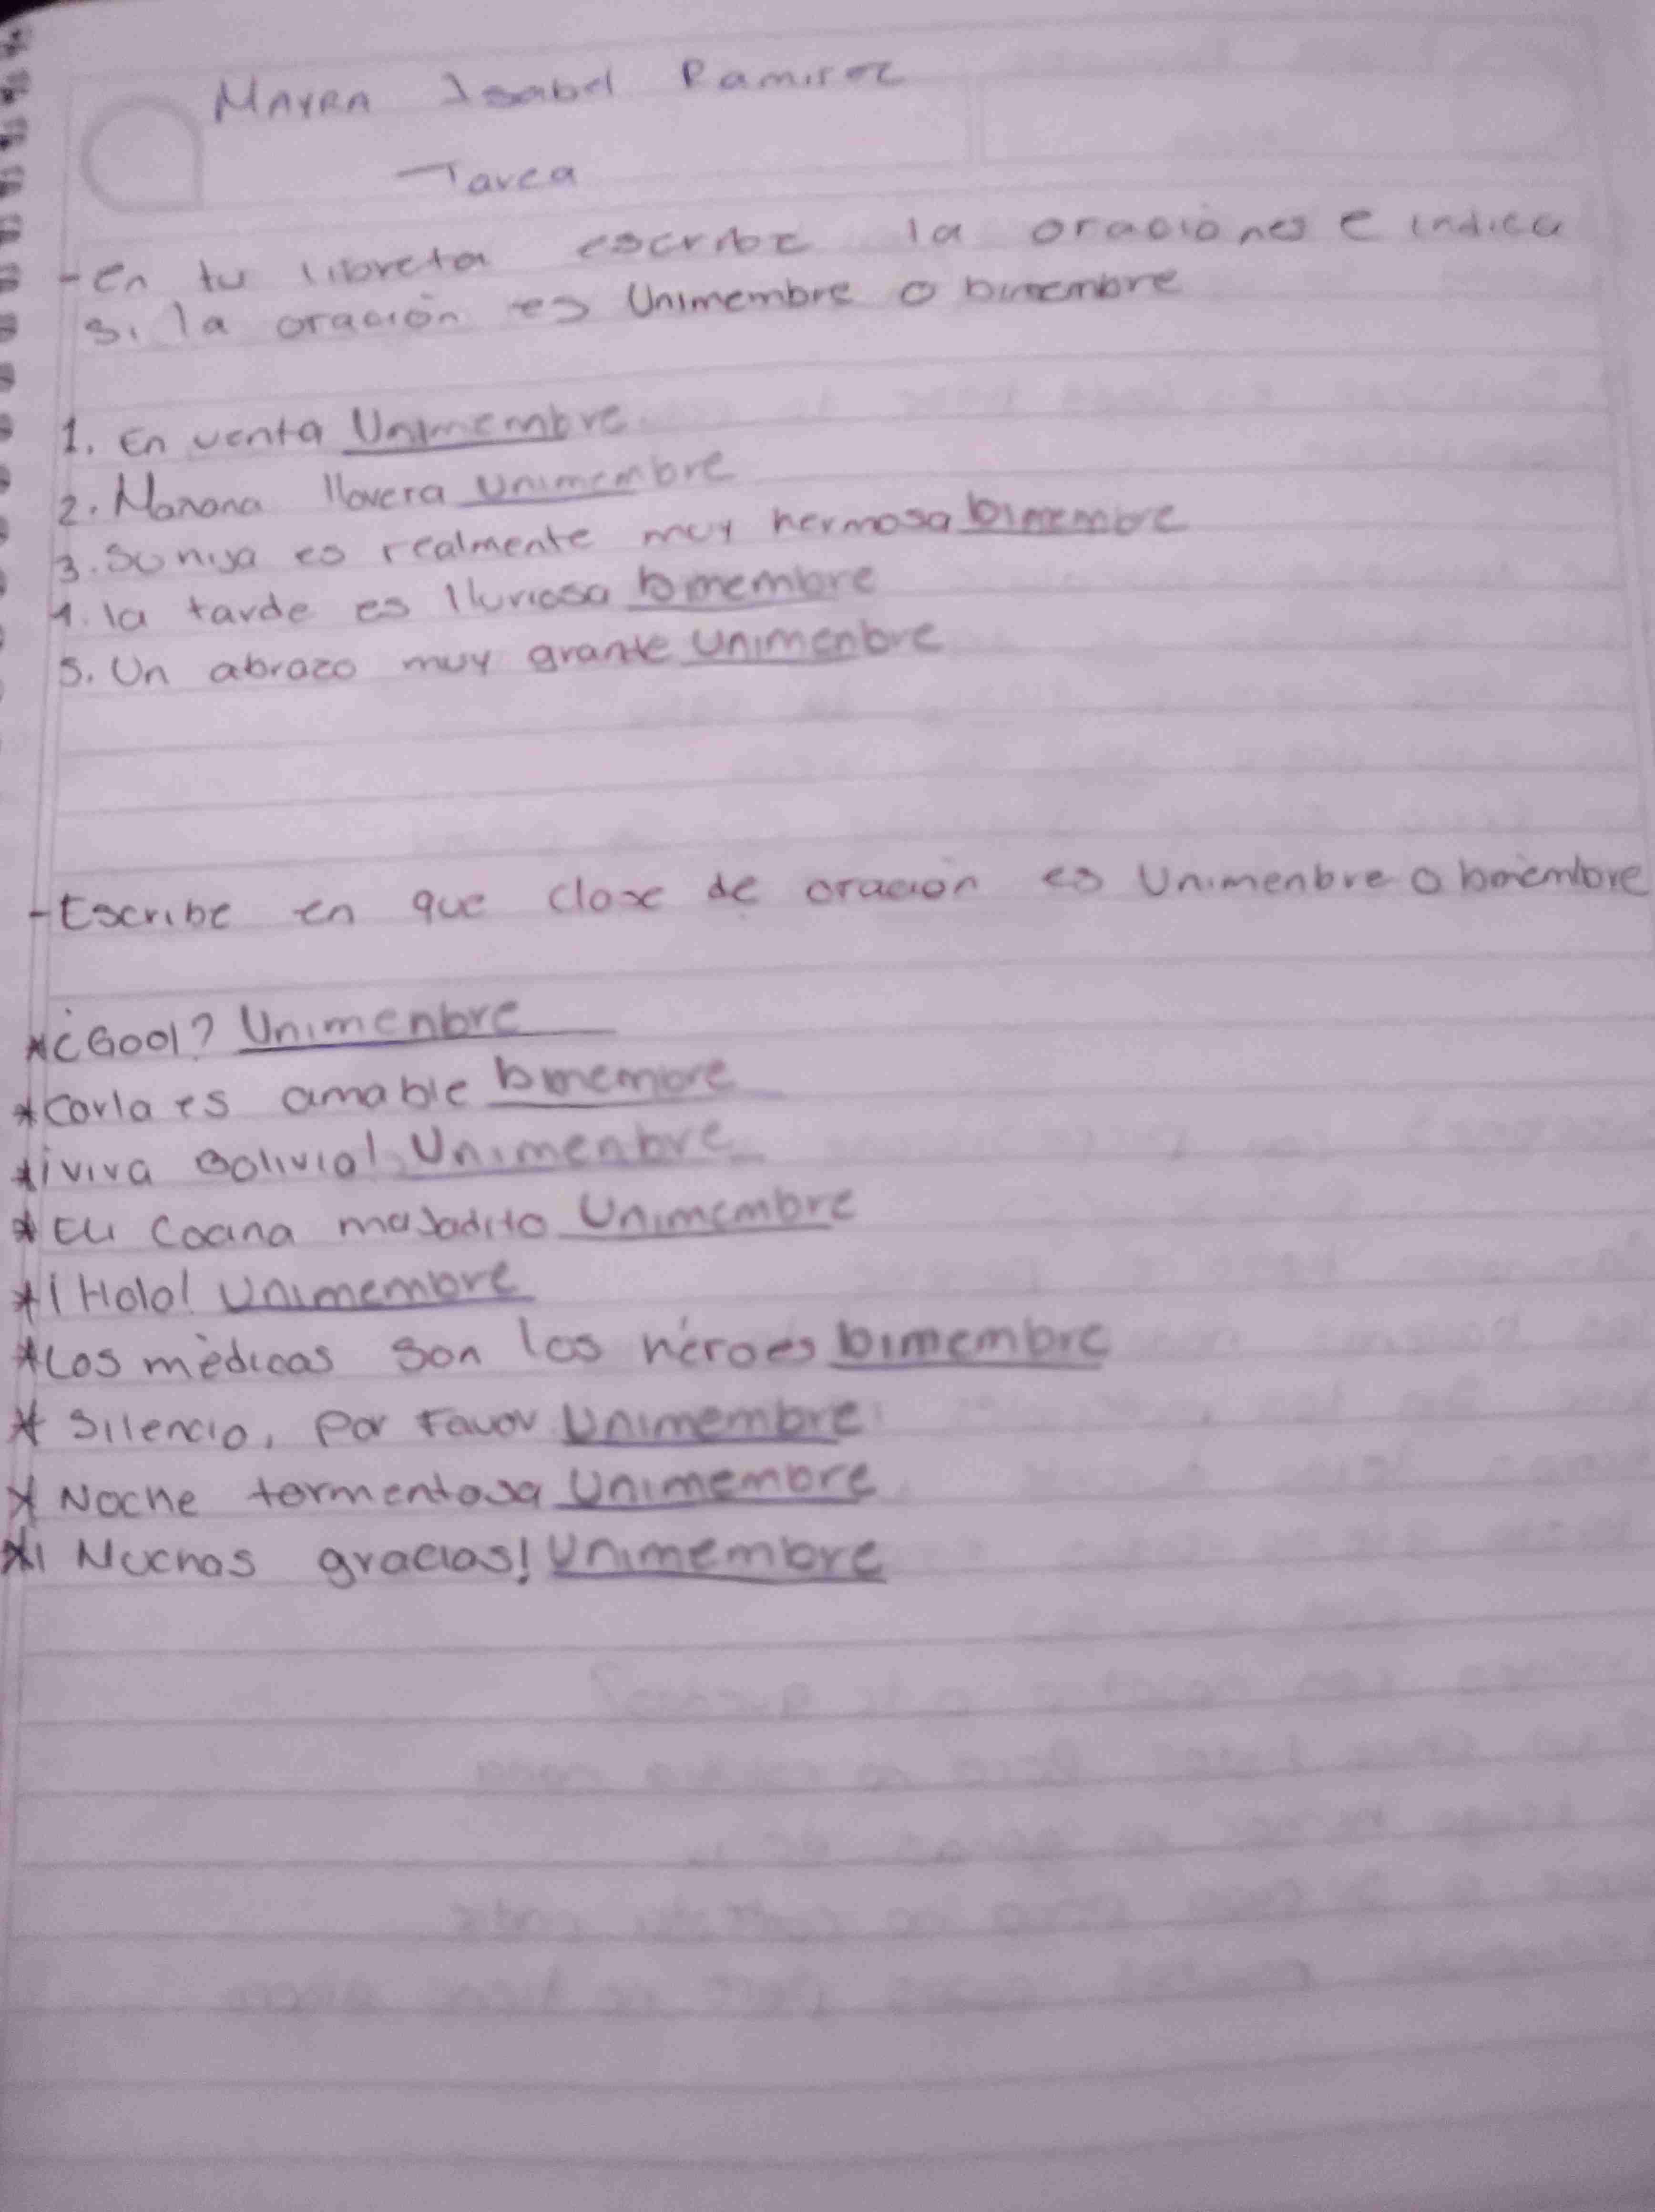 Mayra Isabel Ramirez
Tarea
- En tu libreta escribe la oraciones e indica
si la oración es Unimembre o bimembre
1. En venta Unimembre
2. Manana llovera unimembre
3. Su hija es realmente muy hermosa bimembre
4. la tarde es lluviosa bimembre
5. Un abrazo muy grante unimenbre
- Escribe en que clase de oración es Unimenbre o bimembre
* ¿Gool? Unimenbre
* Carla es amable bimembre
* ¡viva Bolivia! Unimenbre
* Eli cocina majadito Unimembre
* ¡Hola! Unimembre
* Los médicos son los héroes bimembre
* Silencio, por Favor Unimembre
* Noche tormentosa Unimembre
* ¡Muchas gracias! Unimembre